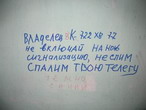 ВЛАДЕЛЕЦ К 722 ХВ 72
не включай на ночь
сигнализацию, не спим
СПАЛИМ ТВОЮ Телегу